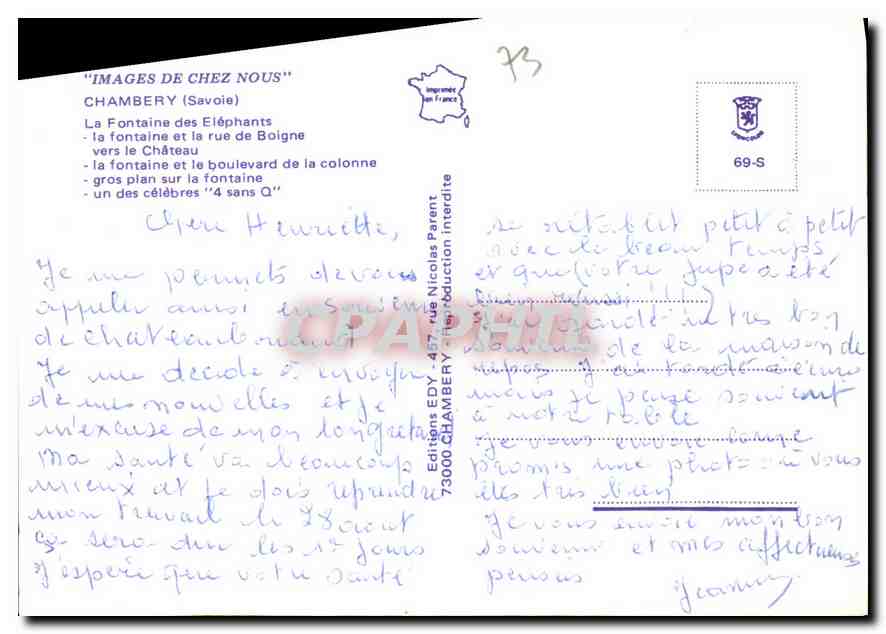 73
"IMAGES DE CHEZ NOUS"
CHAMBERY (Savoie)
La Fontaine des Eléphants
- la fontaine et la rue de Boigne
vers le Château
- la fontaine et le boulevard de la colonne
- gros plan sur la fontaine
- un des célèbres "4 sans Q"
Imprimée
en France
69-S
Editions EDY - 457, rue Nicolas Parent
73000 CHAMBERY - Reproduction interdite
CPAPHIL
Chère Henriette,
Je me permets de vous
appeler ainsi en souvenir
de chateaubriand
Je me décide à envoyer
de mes nouvelles et je
m'excuse de mon long retard
Ma santé va beaucoup
mieux et je dois reprendre
mon travail le 28 août
ça sera dur les 1er jours
J'espère que votre santé
se rétablit petit à petit
avec le beau temps
et que votre jupe a été
bien réussi !!!)
J'ai gardé un très bon
souvenir de la maison de
repos J'ai tardé à écrire
mais je pense souvent
à notre table
Je vous envoie comme
promis une photo où vous
êtes très bien
Je vous envoie mon bon
souvenir et mes affectueuses
pensées